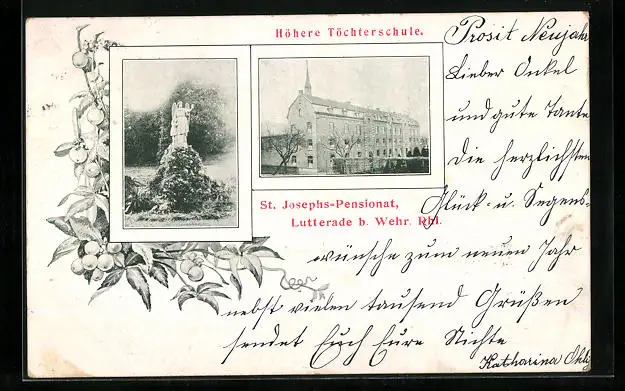 Höhere Töchterschule.
St. Josephs-Pensionat,
Lutterade b. Wehr. Rhl.
Prosit Neujahr
Lieber Onkel
und gute Tante
Die herzlichsten
Glück- u. Segens-
wünsche zum neuen Jahr
nebst vielen tausend Grüßen
sendet Euch Eure Nichte
Katharina